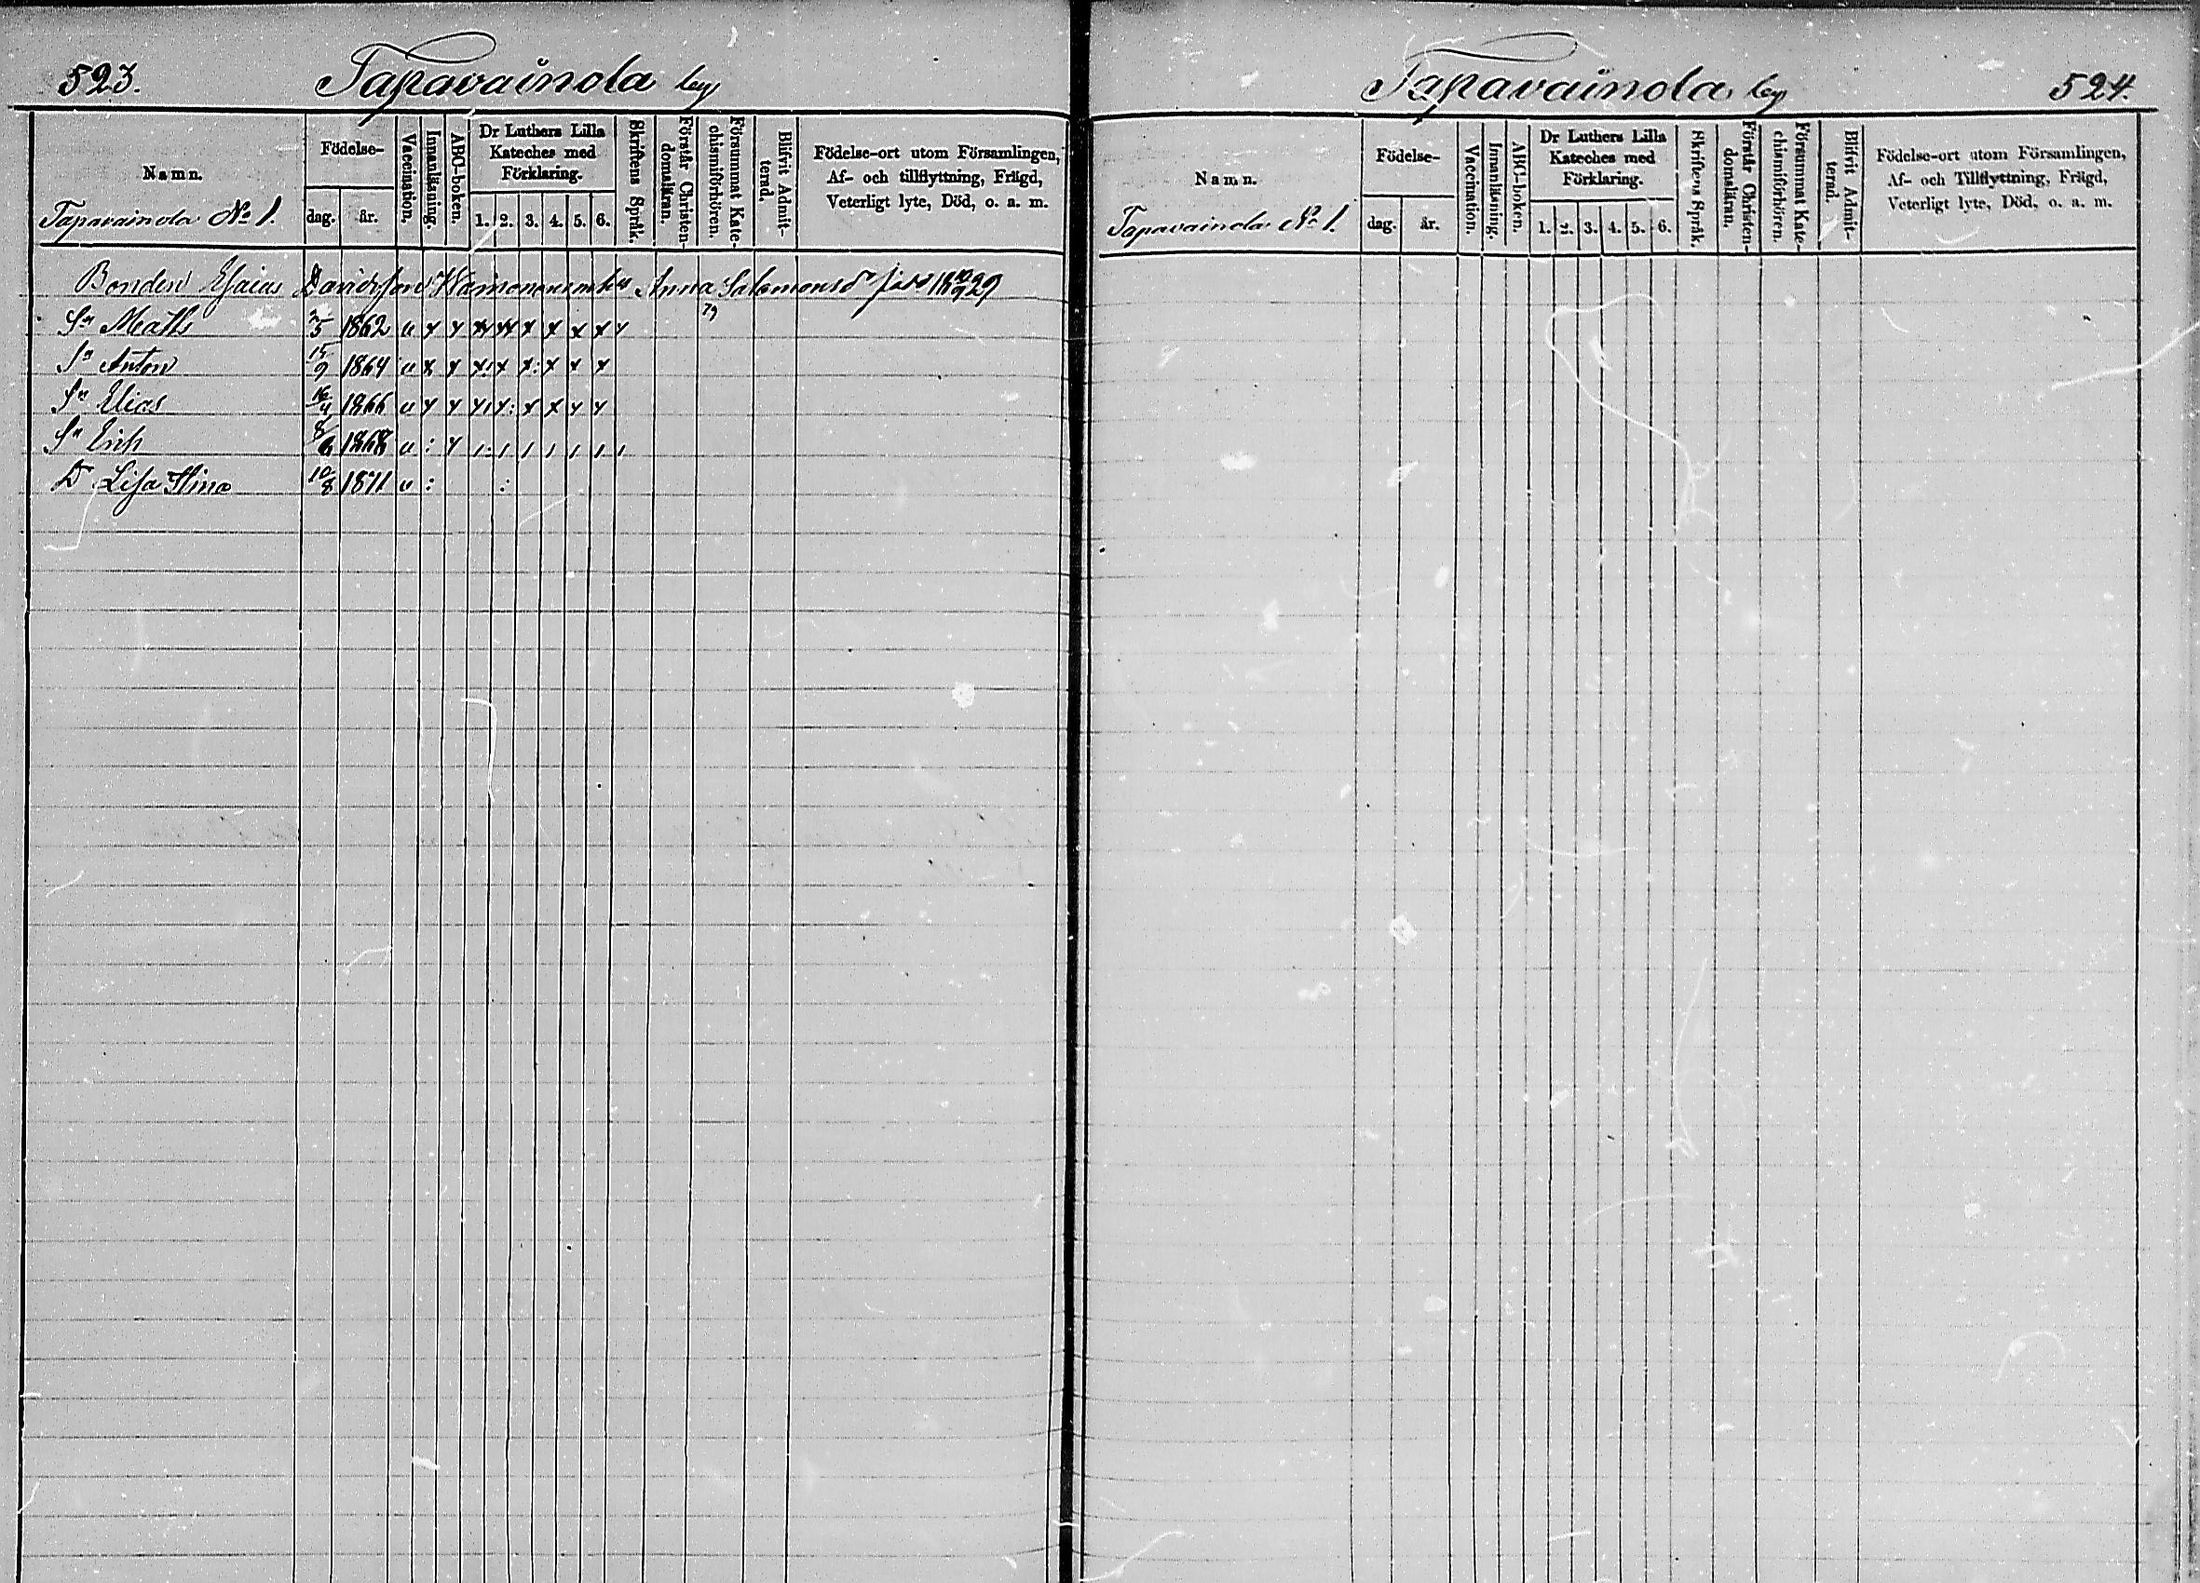 523. Tapavainola by
Namn. Födelse- Vaccination. Innanläsning. ABC-boken. Dr Luthers Lilla Kateches med Förklaring. Skriftens Språk. Förstår Christendomsläran. Försummat Katechismiförhören. Blifvit Admitterad. Födelse-ort utom Församlingen, Af- och tillflyttning, Frägd, Veterligt lyte, Död, o. a. m.
Tapavainola No 1. dag. år. 1. 2. 3. 4. 5. 6.
Bonden Esaias Davidsson Anna Salomonsd
79
Sn Matts 2/5 1862
Sn Anton 15/9 1864
Sn Elias 16/4 1866
Sn Erich 8/6 1868
D Lisa Stina 10/8 1871
Tapavainola by 524.
Namn. Födelse- Vaccination. Innanläsning. ABC-boken. Dr Luthers Lilla Kateches med Förklaring. Skriftens Språk. Förstår Christendomsläran. Försummat Katechismiförhören. Blifvit Admitterad. Födelse-ort utom Församlingen, Af- och Tillflyttning, Frägd, Veterligt lyte, Död, o. a. m.
Tapavainola No 1. dag. år. 1. 2. 3. 4. 5. 6.